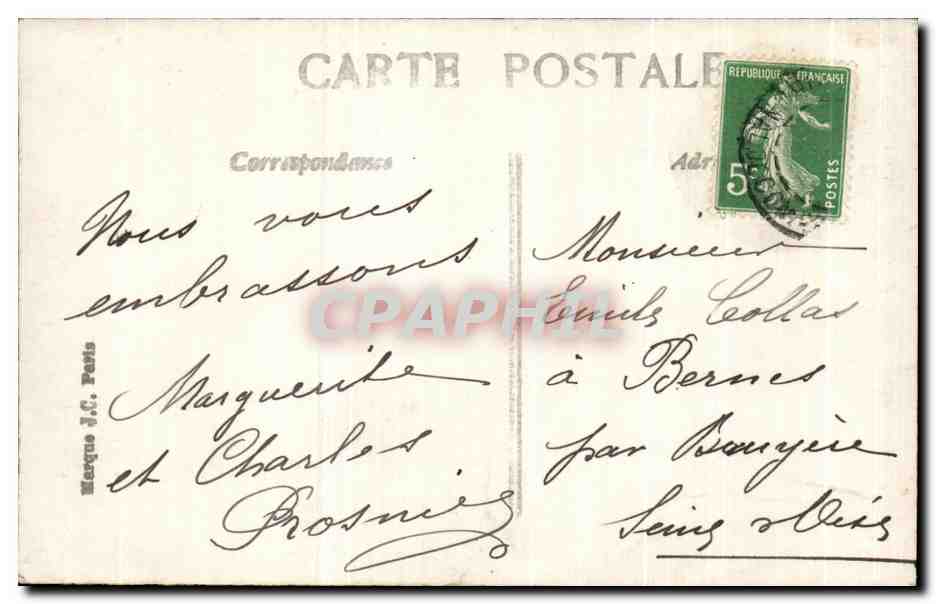 CARTE POSTALE
RÉPUBLIQUE FRANÇAISE
5
POSTES
Correspondance
Nous vous
embrassons
Marguerite
et Charles
Prosnier
Marque J.C. Paris
Adr
Monsieur
Emile Collas
à Bernes
par Bruyère
Seine & Oise
CPAPHIL